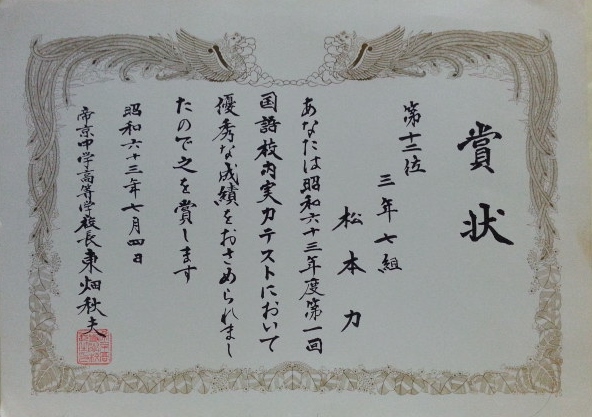 賞状
第十二位
三年七組
松本力
あなたは昭和六十三年度第一回
国語校内実力テストにおいて
優秀な成績をおさめられまし
たので之を賞します
昭和六十三年七月四日
帝京中学高等学校長東畑秋夫